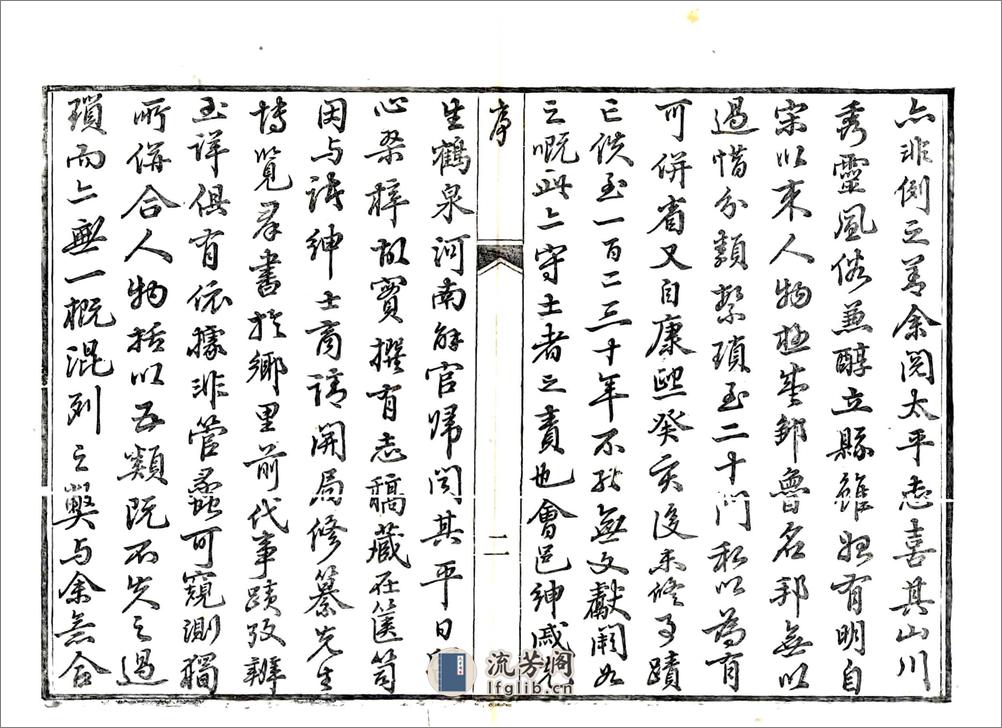 亦非倒之善余閱太平志喜其山川
秀靈風俗兼醇立縣雖始有明自
宋以來人物極盛鄒魯名邦無以
過惜分類繁瑣至二十門私以為有
可併省又自康熙癸亥後未修事蹟
已佚至一百二三十年不行無文獻闕如
之嘅此亦守土者之責也會邑紳戚
序
二
生鶴泉河南解官歸閱其平日
心桑梓故實撰有志稿藏在篋笥
因与諸紳士商請開局修纂先生
博覽羣書於鄉里前代事蹟攷辨
至詳俱有依據非管蠡可窺測獨
所併合人物括以五類既不失之過
瑣而亦無一概混列之弊与余意合
流芳阁
lfglib.cn